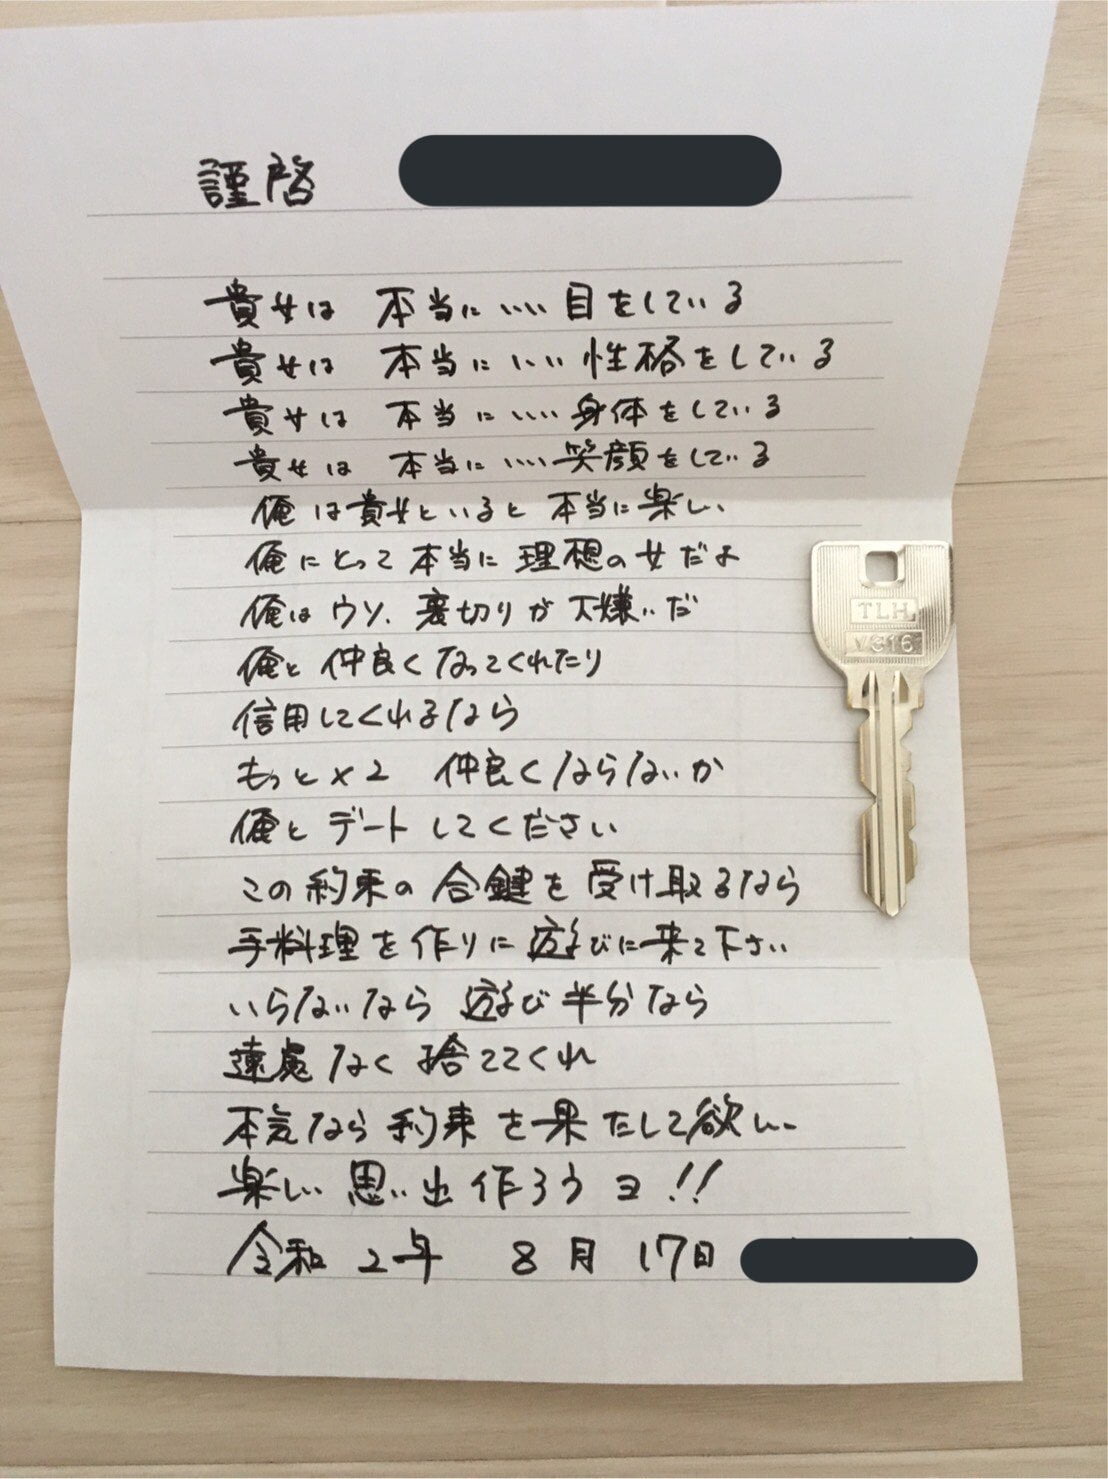 謹啓
貴女は 本当にいい目をしている
貴女は 本当にいい性格をしている
貴女は 本当にいい身体をしている
貴女は 本当にいい笑顔をしている
俺は貴女といると本当に楽しい
俺にとって本当に理想の女だよ
俺はウソ、裏切りが大嫌いだ
俺と仲良くなってくれたり
信用してくれるなら
もっと×2 仲良くならないか
俺とデートしてください
この約束の合鍵を受け取るなら
手料理を作りに遊びに来て下さい
いらないなら遊び半分なら
遠慮なく捨ててくれ
本気なら約束を果たして欲しい
楽しい思い出作ろうヨ!!
令和2年 8月17日
TLH
VC16